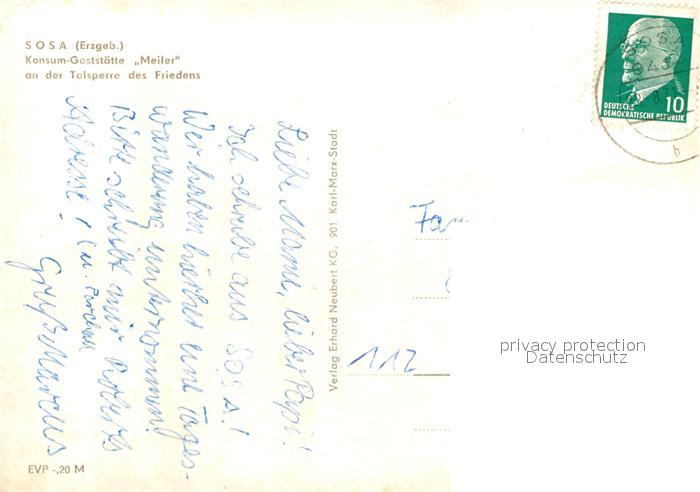 SOSA (Erzgeb.)
Konsum-Gaststätte „Meiler"
an der Talsperre des Friedens
Liebe Mami, lieber Papi!
Ich schreibe aus SOSA!
Wir haben hierher eine Tages-
wanderung unternommen!
Bitte schreibt mir Roberts
Adresse! (u.
Gruß Marcus
EVP -,20 M
Verlag Erhard Neubert KG, 901 Karl-Marx-Stadt
10
DEUTSCHE
DEMOKRATISCHE REPUBLIK
SOSA
b
Fa
112
privacy protection
Datenschutz